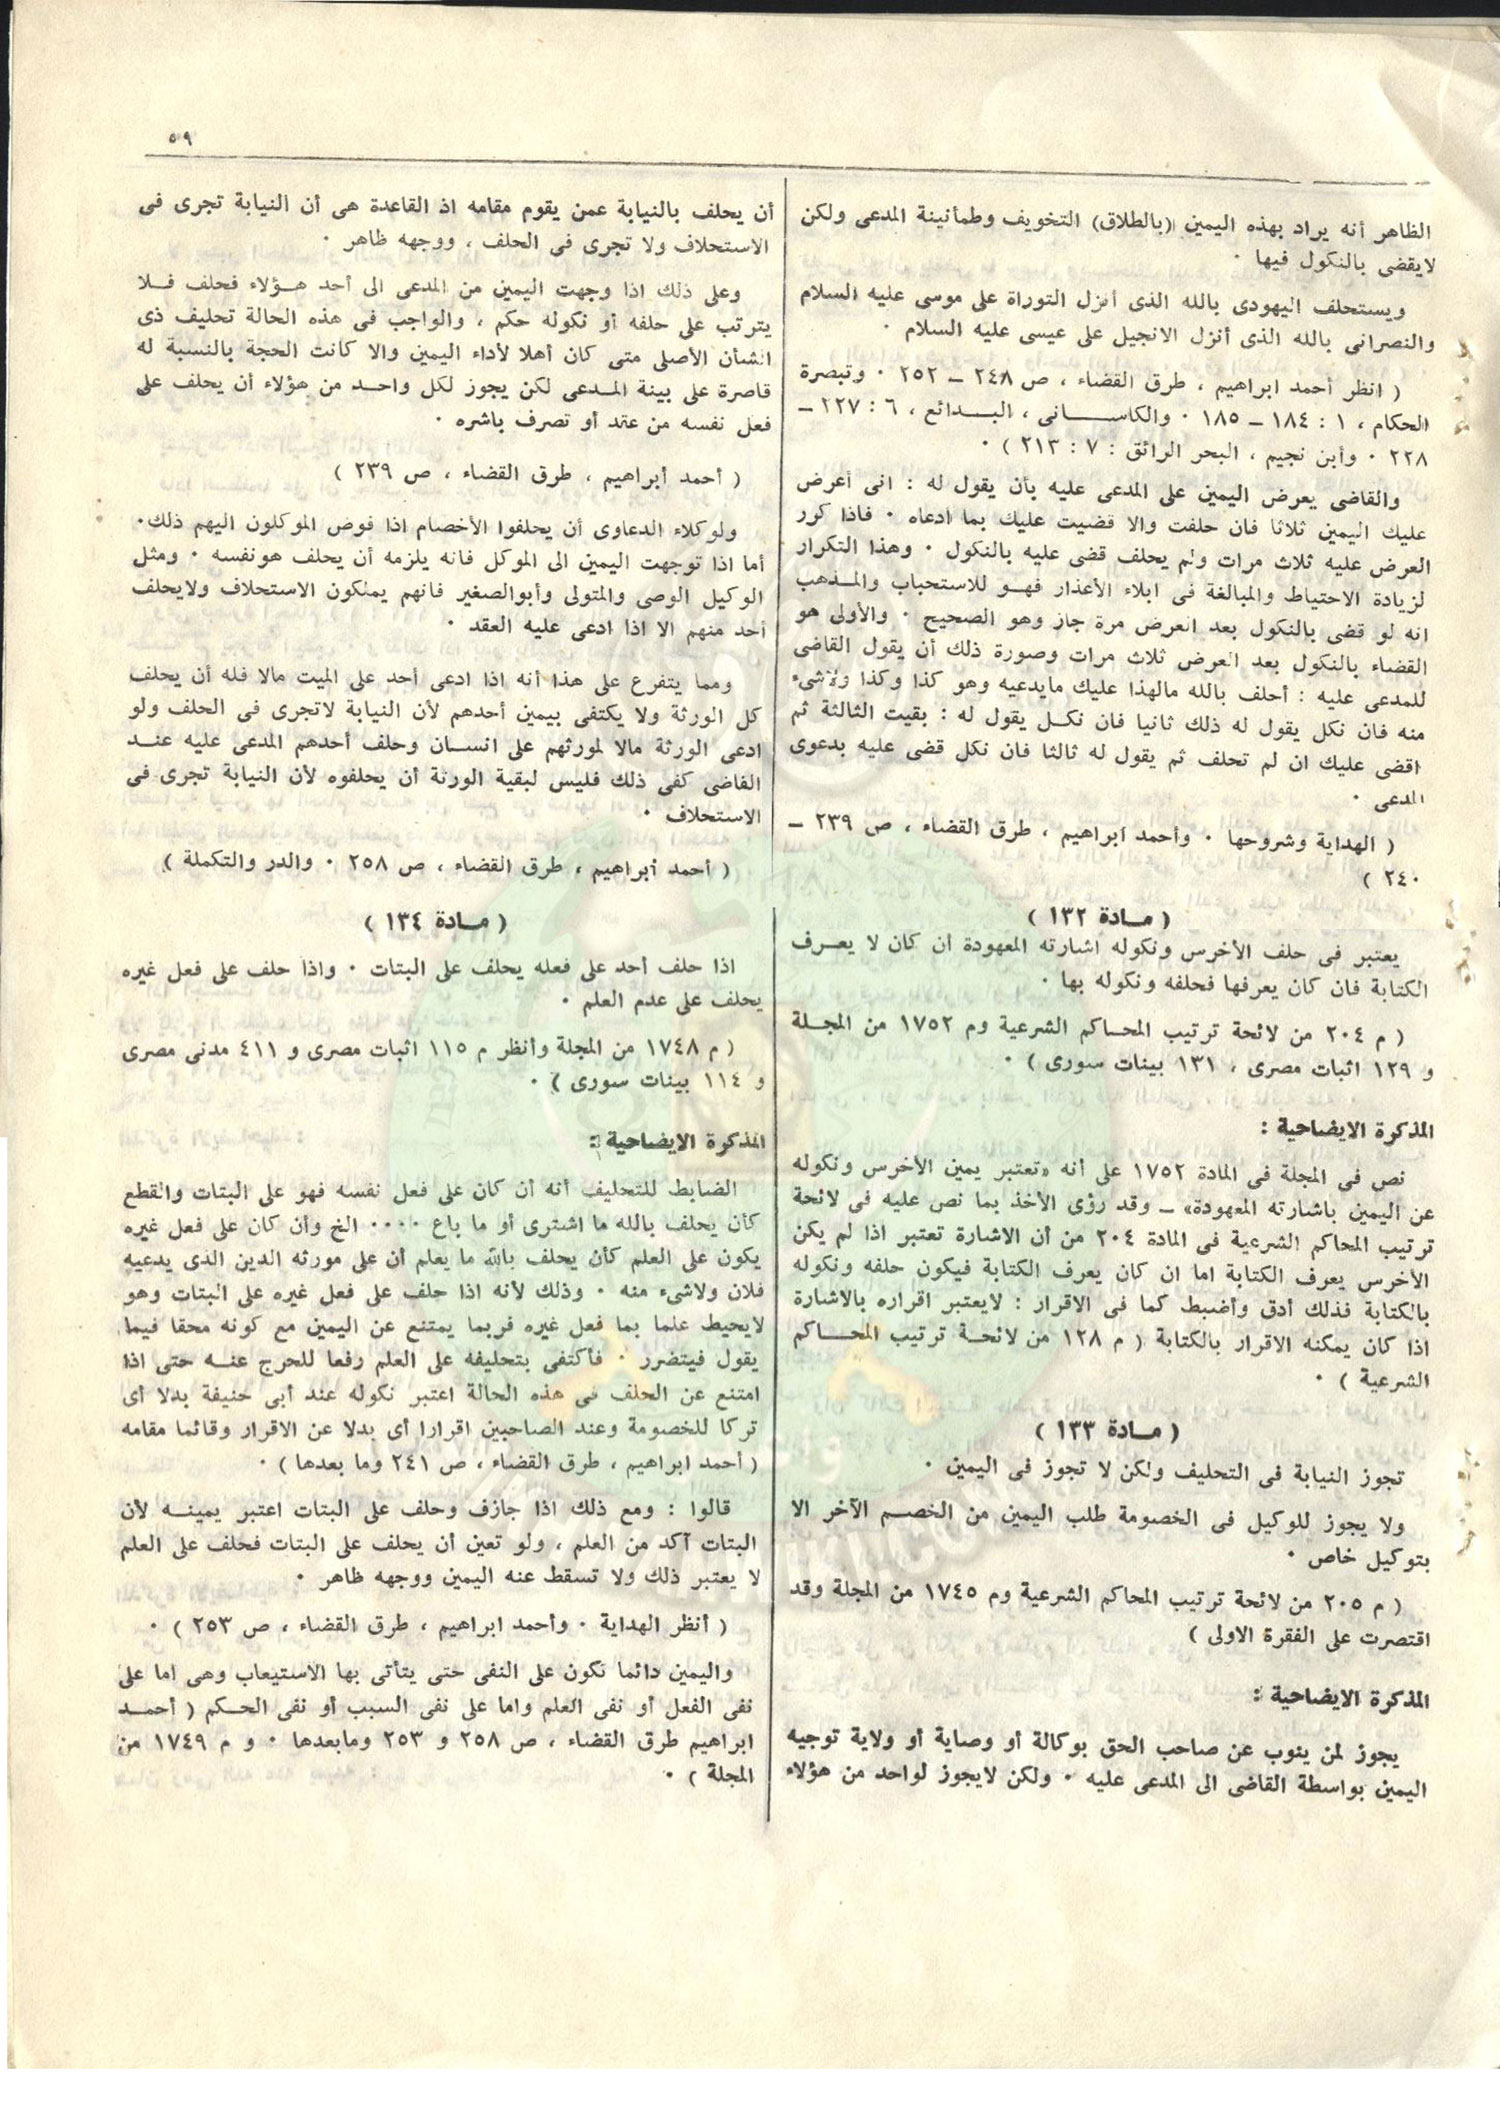 ٥٩
الظاهر أنه يراد بهذه اليمين (بالطلاق) التخويف وطمأنينة المدعى ولكن
لايقضى بالنكول فيها ٠
ويستحلف اليهودى بالله الذى أنزل التوراة على موسى عليه السلام
والنصرانى بالله الذى أنزل الانجيل على عيسى عليه السلام ٠
( انظر أحمد ابراهيم ، طرق القضاء ، ص ٢٤٨ ــ ٢٥٢ ٠ وتبصرة
الحكام ، ١ : ١٨٤ ــ ١٨٥ ٠ والكاسانى ، البدائع ، ٦ : ٢٢٧ ــ
٢٢٨ ٠ وأبن نجيم ، البحر الرائق : ٧ : ٢١٣ ) ٠
والقاضى يعرض اليمين على المدعى عليه بأن يقول له : انى أعرض
عليك اليمين ثلاثا فان حلفت والا قضيت عليك بما ادعاه ٠ فاذا كرر
العرض عليه ثلاث مرات ولم يحلف قضى عليه بالنكول ٠ وهذا التكرار
لزيادة الاحتياط والمبالغة فى ابلاء الأعذار فهو للاستحباب والمذهب
انه لو قضى بالنكول بعد العرض مرة جاز وهو الصحيح ٠ والأولى هو
القضاء بالنكول بعد العرض ثلاث مرات وصورة ذلك أن يقول القاضى
للمدعى عليه : أحلف بالله مالهذا عليك مايدعيه وهو كذا وكذا ولاشىء
منه فان نكل يقول له ذلك ثانيا فان نكل يقول له : بقيت الثالثة ثم
اقضى عليك ان لم تحلف ثم يقول له ثالثا فان نكل قضى عليه بدعوى
المدعى ٠
( الهداية وشروحها ٠ وأحمد ابراهيم ، طرق القضاء ، ص ٢٣٩ ــ
٢٤٠ )
( مادة ١٣٢ )
يعتبر فى حلف الأخرس ونكوله اشارته المعهودة ان كان لا يعرف
الكتابة فان كان يعرفها فحلفه ونكوله بها ٠
( م ٢٠٤ من لائحة ترتيب المحاكم الشرعية وم ١٧٥٢ من المجلة
و ١٢٩ اثبات مصرى ، ١٣١ بينات سورى ) ٠
المذكرة الايضاحية :
نص فى المجلة فى المادة ١٧٥٢ على أنه «تعتبر يمين الأخرس ونكوله
عن اليمين باشارته المعهودة» ــ وقد رؤى الأخذ بما نص عليه فى لائحة
ترتيب المحاكم الشرعية فى المادة ٢٠٤ من أن الاشارة تعتبر اذا لم يكن
الأخرس يعرف الكتابة اما ان كان يعرف الكتابة فيكون حلفه ونكوله
بالكتابة فذلك أدق وأضبط كما فى الاقرار : لايعتبر اقراره بالاشارة
اذا كان يمكنه الاقرار بالكتابة ( م ١٢٨ من لائحة ترتيب المحاكم
الشرعية ) ٠
( مادة ١٣٣ )
تجوز النيابة فى التحليف ولكن لا تجوز فى اليمين ٠
ولا يجوز للوكيل فى الخصومة طلب اليمين من الخصم الآخر الا
بتوكيل خاص ٠
( م ٢٠٥ من لائحة ترتيب المحاكم الشرعية وم ١٧٤٥ من المجلة وقد
اقتصرت على الفقرة الاولى )
المذكرة الايضاحية :
يجوز لمن ينوب عن صاحب الحق بوكالة أو وصاية أو ولاية توجيه
اليمين بواسطة القاضى الى المدعى عليه ٠ ولكن لايجوز لواحد من هؤلاء
أن يحلف بالنيابة عمن يقوم مقامه اذ القاعدة هى أن النيابة تجرى فى
الاستحلاف ولا تجرى فى الحلف ، ووجهه ظاهر ٠
وعلى ذلك اذا وجهت اليمين من المدعى الى أحد هؤلاء فحلف فلا
يترتب على حلفه أو نكوله حكم ، والواجب فى هذه الحالة تحليف ذى
الشأن الأصلى متى كان أهلا لأداء اليمين والا كانت الحجة بالنسبة له
قاصرة على بينة المدعى لكن يجوز لكل واحد من هؤلاء أن يحلف على
فعل نفسه من عقد أو تصرف باشره ٠
( أحمد أبراهيم ، طرق القضاء ، ص ٢٣٩ )
ولوكلاء الدعاوى أن يحلفوا الأخصام اذا فوض الموكلون اليهم ذلك٠
أما اذا توجهت اليمين الى الموكل فانه يلزمه أن يحلف هونفسه ٠ ومثل
الوكيل الوصى والمتولى وأبوالصغير فانهم يملكون الاستحلاف ولايحلف
أحد منهم الا اذا ادعى عليه العقد ٠
ومما يتفرع على هذا أنه اذا ادعى أحد على الميت مالا فله أن يحلف
كل الورثة ولا يكتفى بيمين أحدهم لأن النيابة لاتجرى فى الحلف ولو
ادعى الورثة مالا لمورثهم على انسان وحلف أحدهم المدعى عليه عند
القاضى كفى ذلك فليس لبقية الورثة أن يحلفوه لأن النيابة تجرى فى
الاستحلاف ٠
( أحمد أبراهيم ، طرق القضاء ، ص ٢٥٨ ٠ والدر والتكملة )
( مادة ١٣٤ )
اذا حلف أحد على فعله يحلف على البتات ٠ واذا حلف على فعل غيره
يحلف على عدم العلم ٠
( م ١٧٤٨ من المجلة وأنظر م ١١٥ اثبات مصرى و ٤١١ مدنى مصرى
و ١١٤ بينات سورى ) ٠
المذكرة الايضاحية :
الضابط للتحليف أنه أن كان على فعل نفسه فهو على البتات والقطع
كأن يحلف بالله ما اشترى أو ما باع ٠٠٠٠ الخ وأن كان على فعل غيره
يكون على العلم كأن يحلف بالله ما يعلم أن على مورثه الدين الذى يدعيه
فلان ولاشىء منه ٠ وذلك لأنه اذا حلف على فعل غيره على البتات وهو
لايحيط علما بما فعل غيره فربما يمتنع عن اليمين مع كونه محقا فيما
يقول فيتضرر ٠ فأكتفى بتحليفه على العلم رفعا للحرج عنه حتى اذا
امتنع عن الحلف فى هذه الحالة اعتبر نكوله عند أبى حنيفة بدلا أى
تركا للخصومة وعند الصاحبين اقرارا أى بدلا عن الاقرار وقائما مقامه
( أحمد ابراهيم ، طرق القضاء ، ص ٢٤١ وما بعدها ) ٠
قالوا : ومع ذلك اذا جازف وحلف على البتات اعتبر يمينه لأن
البتات آكد من العلم ، ولو تعين أن يحلف على البتات فحلف على العلم
لا يعتبر ذلك ولا تسقط عنه اليمين ووجهه ظاهر ٠
( أنظر الهداية ٠ وأحمد ابراهيم ، طرق القضاء ، ص ٢٥٣ ) ٠
واليمين دائما تكون على النفى حتى يتأتى بها الاستيعاب وهى اما على
نفى الفعل أو نفى العلم واما على نفى السبب أو نفى الحكم ( أحمد
ابراهيم طرق القضاء ، ص ٢٥٨ و ٢٥٣ ومابعدها ٠ و م ١٧٤٩ من
المجلة ) ٠